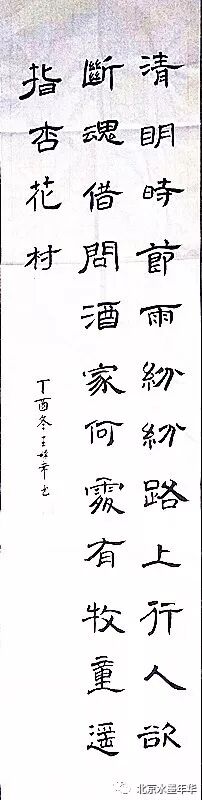 清明時節雨紛紛路上行人欲
斷魂借問酒家何處有牧童遥
指杏花村
丁酉冬王
北京水墨年华